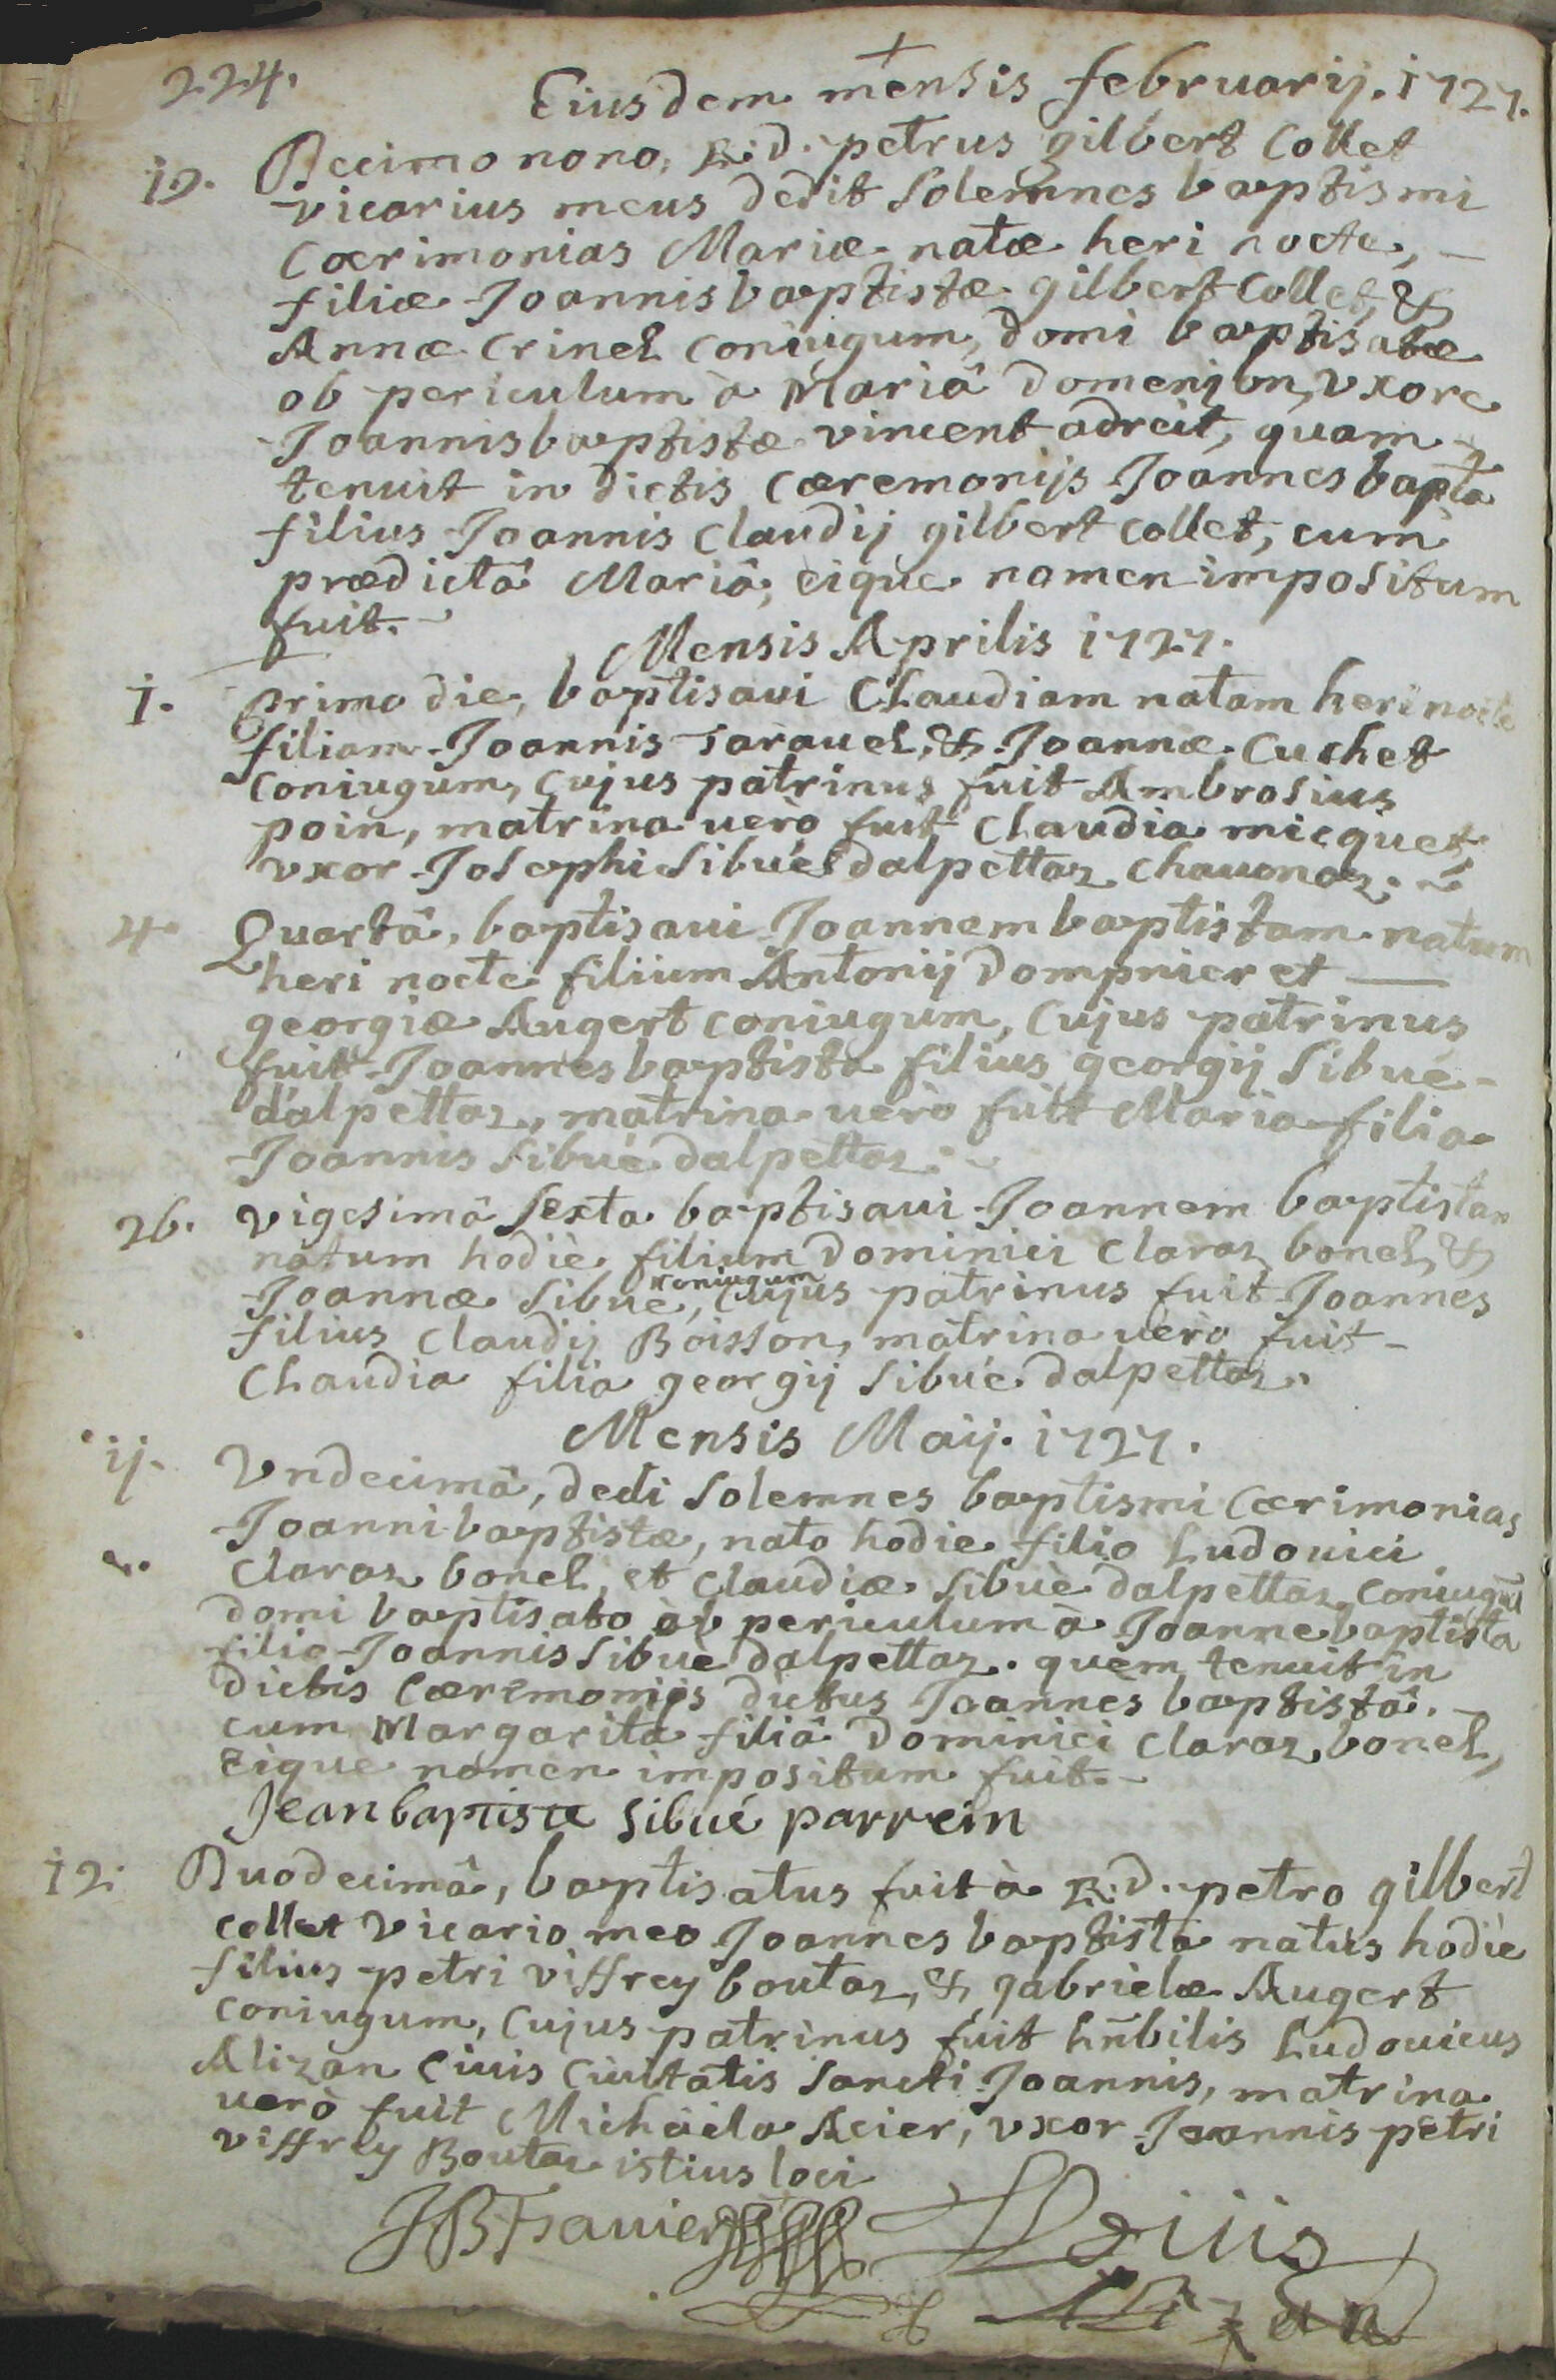 224.
Eiusdem mensis februarij. 1727.
19. Decimo nono, R.d. petrus gilbert Collet
vicarius meus dedit solemnes baptismi
Coerimonias Mariæ natæ heri nocte,
filiæ Joannisbaptistæ gilbert Collet, &
Annæ Crinel coniugum, domi baptisatæ
ob periculum à Mariâ domenjon, vxore
Joannisbaptistæ vincent adreit, quam
tenuit in dictis cæremonijs Joannes bapta
filius Joannis Claudij gilbert collet, cum
prædictâ Mariâ, eique nomen impositum
fuit.
Mensis Aprilis 1727.
1. primo die, baptisaui Claudiam natam heri nocte
filiam Joannis Tarauel, & Joannæ Cuchet
coniugum, Cujus patrinus fuit Ambrosius
poin, matrina uerò fuit Claudia micquet,
vxor Josephi Sibué dalpettaz chauonaz.
4. Quartâ, baptisaui Joannem baptistam natum
heri nocte filium Antonij Dompnier et
georgiæ Augert coniugum, Cujus patrinus
fuit Joannes baptista filius georgij Sibué
d'alpettaz, matrina uerò fuit Maria filia
Joannis Sibué dalpettaz.
26. vigesimâ Sexta baptisaui Joannem baptistam
natum hodiè filium Dominici Claraz bonel, &
Joannæ Sibué, coniugum Cujus patrinus fuit Joannes
filius Claudij Boisson, matrina uerò fuit
Claudia filia georgij Sibué dalpettaz.
Mensis Maij. 1727.
11. Vndecimâ, dedi solemnes baptismi Cærimonias
Joanni baptistæ, nato hodie filio Ludouici
Claraz bonel, et Claudiæ Sibuè dalpettaz, Coniugũ
domi baptisato ob periculum à Joanne baptista
filio Joannis Sibuè dalpettaz. quem tenuit in
dictis Cæremonijs dictus Joannès baptistâ.
cum Margaritâ filiâ Dominici Claraz bonel,
Eique nomen impositum fuit.
Jean baptiste Sibué parrein
12. Duodecimâ, baptisatus fuit à R.d. petro gilbert
collet vicario meo Joannes baptista natus hodiè
filius petri viffrey boutaz, & gabrielæ Augert
coniugum, Cujus patrinus fuit hñbilis Ludouicus
Alizan Ciuis Ciuitatis Sancti Joannis, matrina
uerò fuit Michaëla Acier, vxor Joannis petri
viffrey Boutaz istius loci
JB Frauier
Alizan